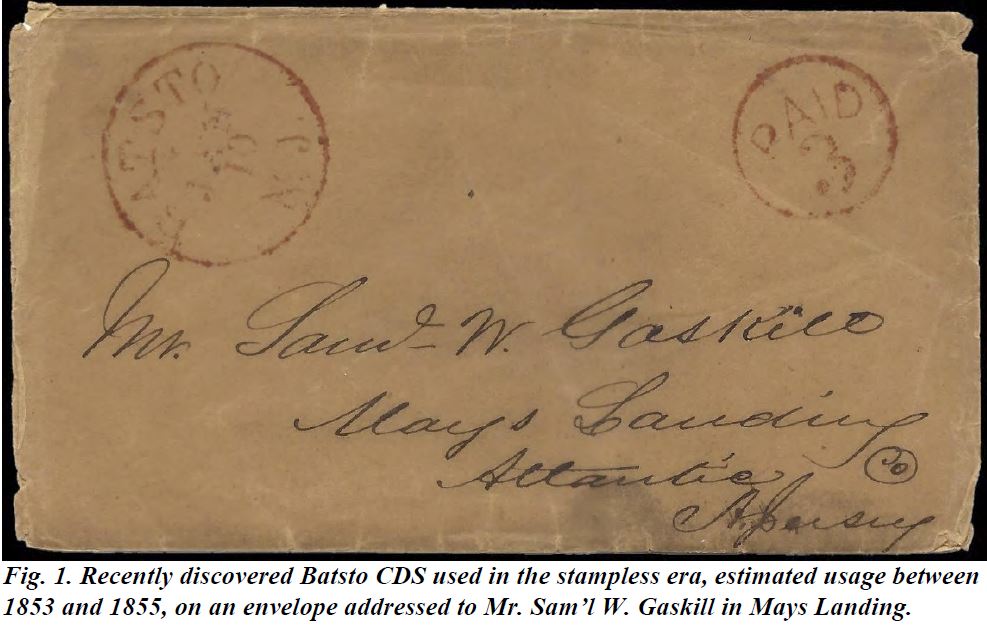 BATSTO
N.J
PAID
3
Mr. Saml W. Gaskill
Mays Landing
Atlantic Co
N. Jersey
Fig. 1. Recently discovered Batsto CDS used in the stampless era, estimated usage between
1853 and 1855, on an envelope addressed to Mr. Sam’l W. Gaskill in Mays Landing.